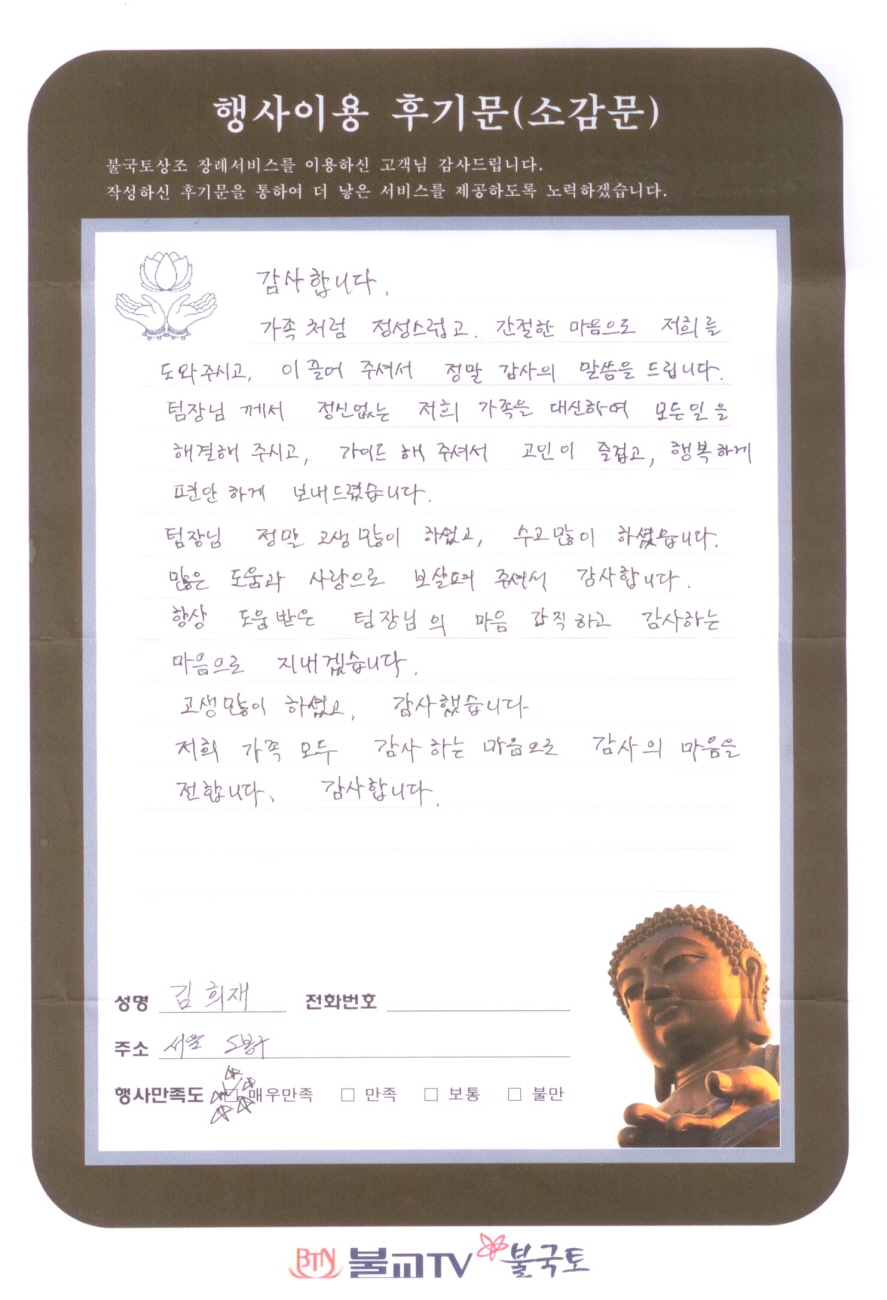 행사이용 후기문(소감문)
불국토상조 장례서비스를 이용하신 고객님 감사드립니다.
작성하신 후기문을 통하여 더 낳은 서비스를 제공하도록 노력하겠습니다.
감사합니다.
가족처럼 정성스럽고. 간절한 마음으로 저희를
도와주시고, 이끌어 주셔서 정말 감사의 말씀을 드립니다.
팀장님 께서 정신없는 저희 가족을 대신하여 모든일을
해결해 주시고, 가이드 해 주셔서 고인이 즐겁고, 행복하게
편안하게 보내드렸습니다.
팀장님 정말 고생많이 하셨고, 수고많이 하셨습니다.
많은 도움과 사랑으로 보살펴 주셔서 감사합니다.
항상 도움받은 팀장님의 마음 간직하고 감사하는
마음으로 지내겠습니다.
고생많이 하셨고, 감사했습니다
저희 가족 모두 감사하는 마음으로 감사의 마음을
전합니다, 감사합니다.
성명 김희재 전화번호
주소 서울 도봉구
행사만족도 □ 매우만족 □ 만족 □ 보통 □ 불만
BTN 불교TV 불국토